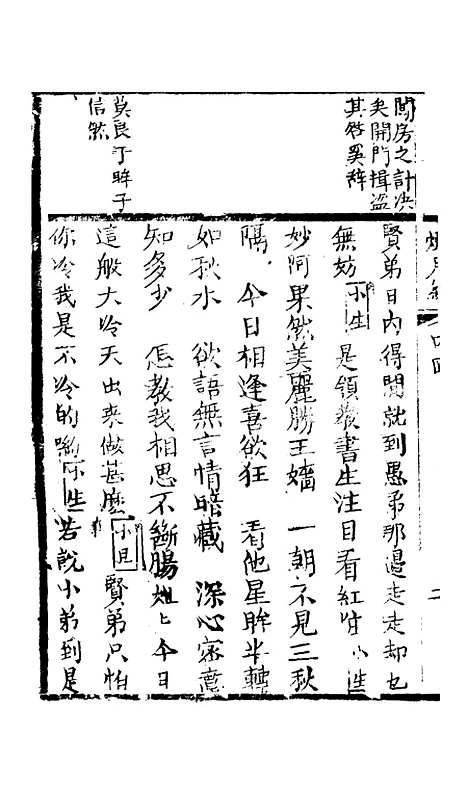 閨房之計决
矣開門揖盗
其咎奚辞
莫良于眸子
信然
賢弟日内得閒就到愚弟那邉走走却也
無妨小生是領教書生注目看紅粧小生
妙阿果然美麗勝王嬙　一朝不見三秋
隔　今日相逢喜欲狂　看他星眸半轉
如秋水　欲語無言情暗藏　深心密意
知多少　怎教我相思不斷腸　今日
這般大冷天出來做甚麽小旦賢弟只怕
你冷我是不冷的喲小生若說小弟到是